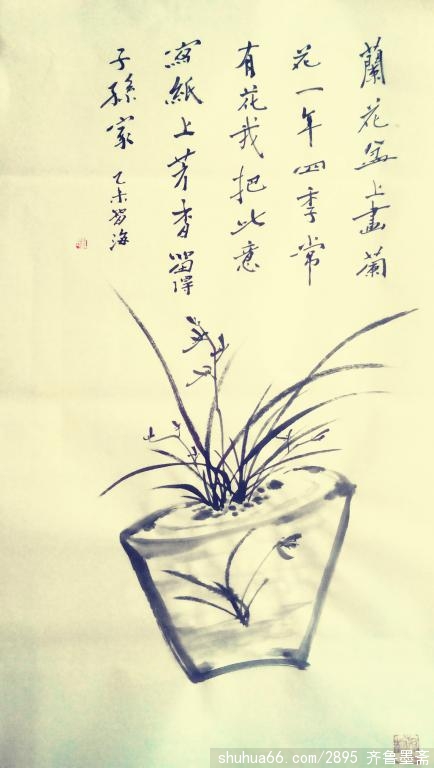 蘭花盆上畫蘭
花一年四季常
有花我把此意
寫紙上芳香留得
子孫家
乙未海
shuhua66.com/2895 齐鲁墨斋